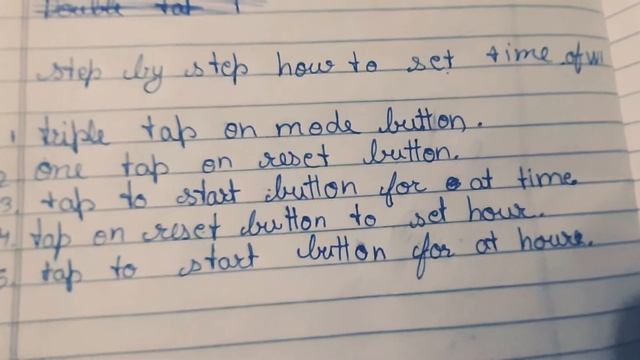 Double tap
step by step how to set time of wi
1 triple tap on mode button.
2 one tap on reset button.
3. tap to start button for at time.
4. tap on reset button to set hour.
5. tap to start button for at hours.